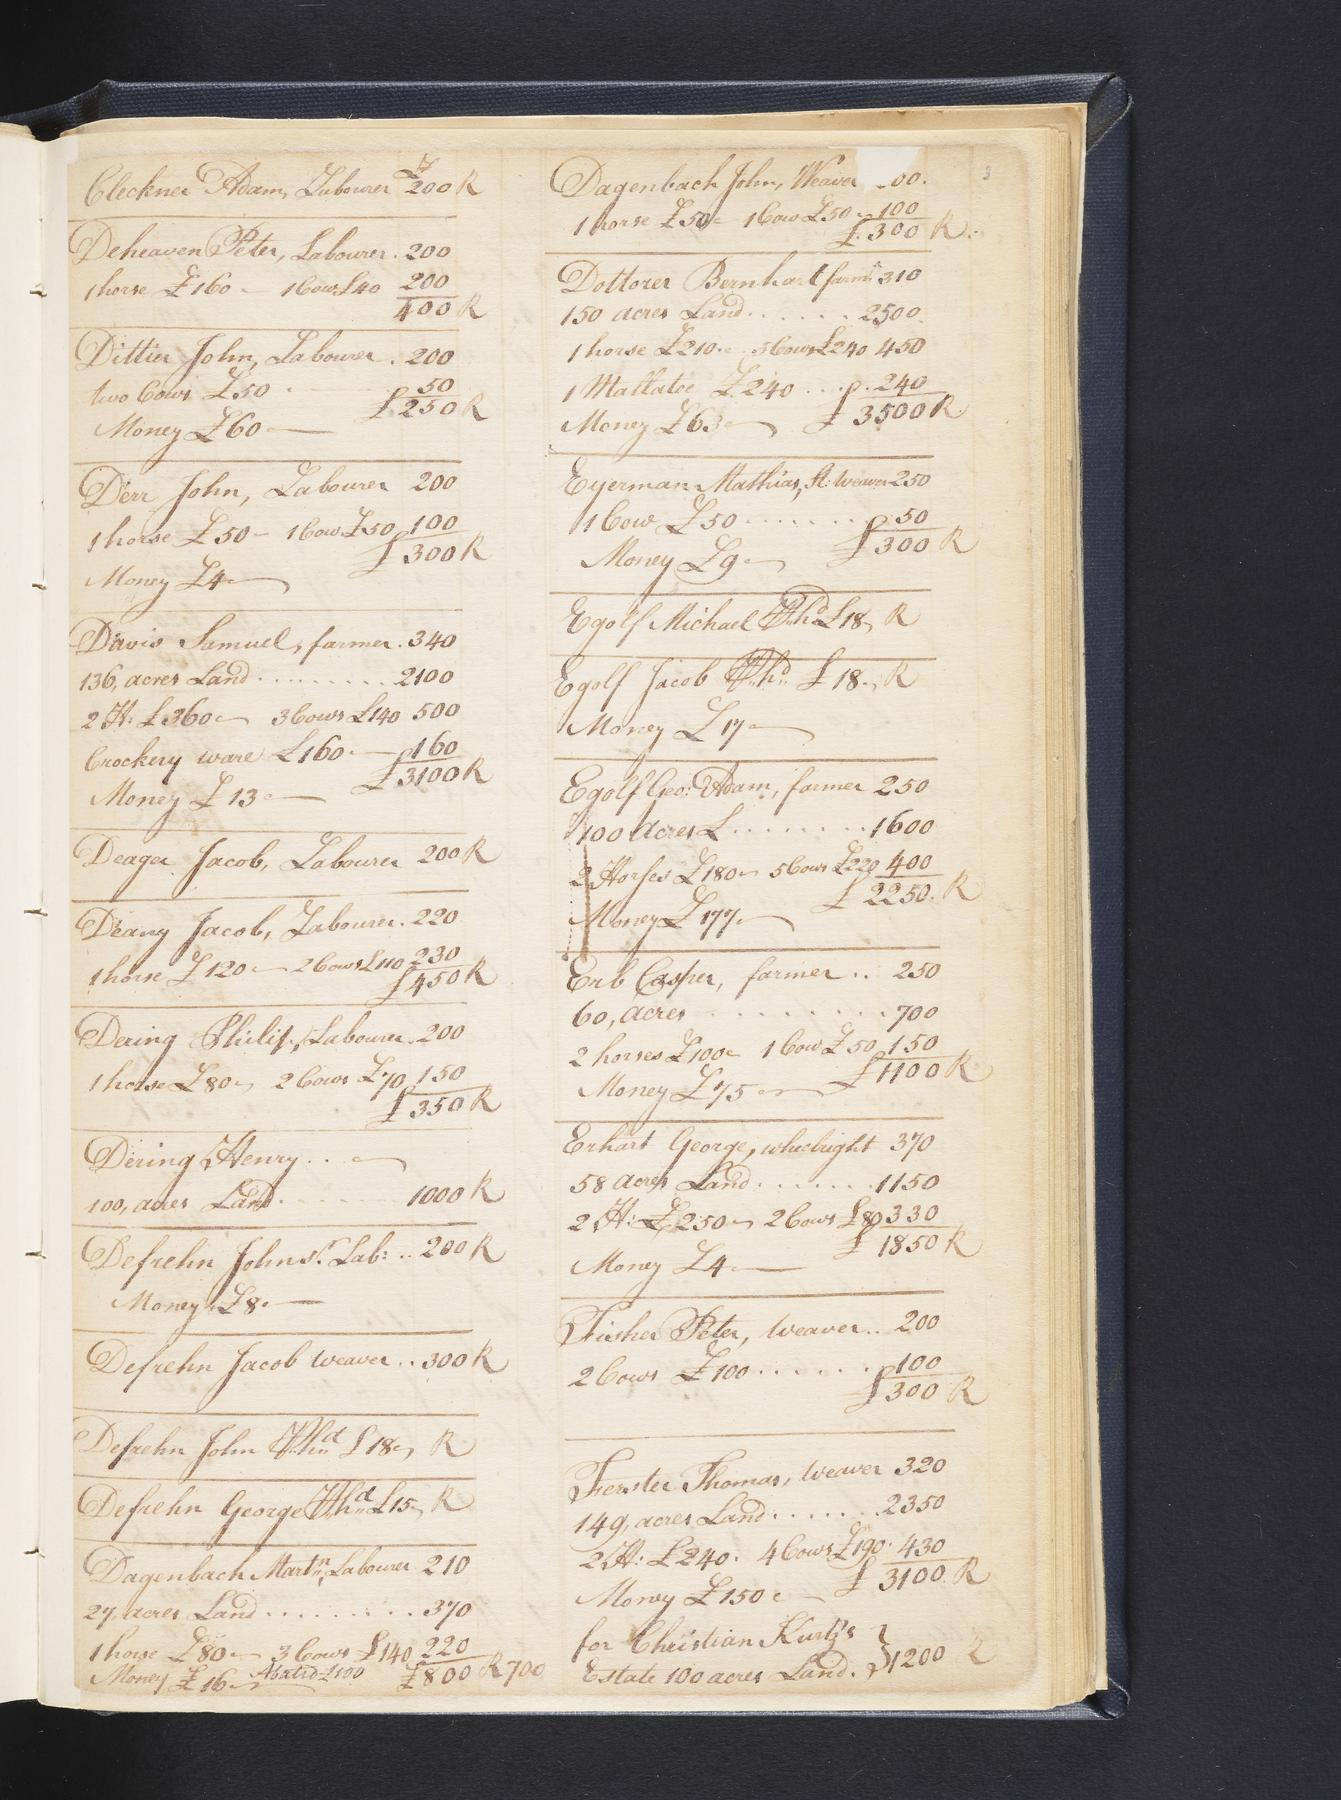 Cleckner Adam, Labourer £ 200 R
Deheaven Peter, Labourer. 200
1 horse £160 - 1 Cow £40 200
400 R
Dittier John, Labourer. 200
two Cows £50 - 50
£ 250 R
Money £60
Derr John, Labourer 200
1 horse £50 - 1 Cow £50 100
£ 300 R
Money £4
Davis Samuel, farmer. 340
136, acres Land ......... 2100
2 H: £360 3 Cows £140 500
Crockery ware £160. 160
£ 3100 R
Money £13
Deager Jacob, Labourer 200 R
Deany Jacob, Labourer. 220
1 horse £120 2 Cows £110 230
£ 450 R
Dering Philip, Labourer. 200
1 horse £80 2 Cows £70 150
£ 350 R
Dering Henry ..
100, acres Land ....... 1000 R
Defrehn John Sr. Lab: .. 200 R
Money £8
Defrehn Jacob weaver .. 300 R
Defrehn John Shd £18 R
Defrehn George Shd £15 R
Dagenbach Martn, Labourer 210
27, acres Land ......... 370
1 horse £80 3 Cows £140 220
Money £16 Abated £100 £800 R 700
Dagenbach John, Weaver 00.
1 horse £50 1 Cow £50 100
£ 300 R.
3
Dottorer Bernhart farmr 310
150 acres Land ....... 2500
1 horse £210. 5 Cows £240 450
1 Mallatoe £240 .... 240
£ 3500 R
Money £63
Eyerman Mathias, St: weaver 250
1 Cow £50 ....... 50
£ 300 R
Money £9
Egolf Michael Shd £18, R
Egolf Jacob Shd £18, R
Money £17
Egolf Geo: Adam, farmer 250
100 acres L ........ 1600
2 Horses £180 5 Cows £220 400
£ 2250. R
Money £177
Erb Casper, farmer .. 250
60, acres ......... 700
2 horses £100 1 Cow £50 150
£ 1100 R
Money £75
Erhart George, whelright 370
58 acres Land ....... 1150
2 H: £250 2 Cows £80 330
£ 1850 R
Money £4
Fisher Peter, weaver .. 200
2 Cows £100 ...... 100
£ 300 R
Ferster Thomas, weaver 320
149, acres Land ...... 2350
2 H: £240. 4 Cows £190. 430
£ 3100 R
Money £150
for Christian Kurtz's }
Estate 100 acres Land. } 1200 R